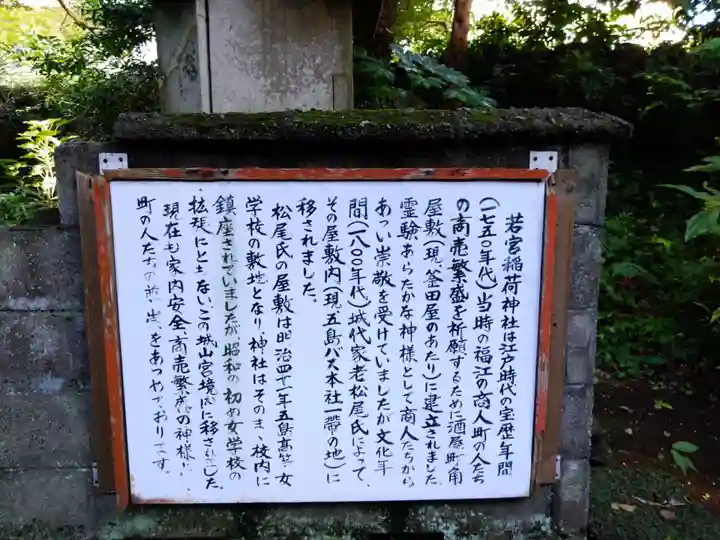 若宮稲荷神社は江戸時代の宝歴年間
(一七五〇年代)当時の福江の商人町の人たち
の商売繁盛を祈願するために酒屋町角
屋敷(現、釜田屋のあたり)に建立されました。
霊験あらたかな神様として商人たちから
あつい崇敬を受けていましたが文化年
間(一八〇〇年代)城代家老松尾氏によって、
その屋敷内(現、五島バス本社一帯の地)に
移されました。
松尾氏の屋敷は明治四十一年五島高等女
学校の敷地となり神社はそのまゝ校内に
鎮座されていましたが昭和の初め女学校の
拡張にともないこの城山宮境内に移されました。
現在も家内安全、商売繁盛の神様と
町の人たちの をあつめております。